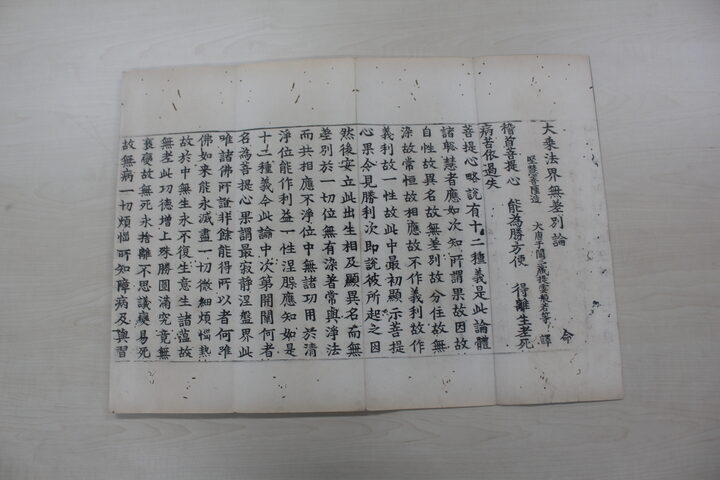 大乘法界無差別論 命
堅慧菩薩造 大唐于闐三藏提雲般若等譯
稽首菩提心 能為勝方便 得離生老死
病苦依過失
菩提心略說有十二種義是此論體
諸聰慧者應如次知所謂果故因故
自性故異名故無差別故分位故無
染故常恒故相應故不作義利故作
義利故一性故此中最初顯示菩提
心果令見勝利次即說彼所起之因
然後安立此出生相及顯異名而無
差別於一切位無有染著常與淨法
而共相應不淨位中無諸功用於清
淨位能作利益一性涅槃應知如是
十二種義今此論中次第開闡何者
名為菩提心果謂最寂静涅盤界此
唯諸佛所證非餘能得所以者何唯
佛如來能永滅盡一切微細煩惱熱
故於中無生永不復生意生諸蘊故
無老此功德增上殊勝圓滿究竟無
衰變故無死永捨離不思議變易死
故無病一切煩惱所知障病及與習